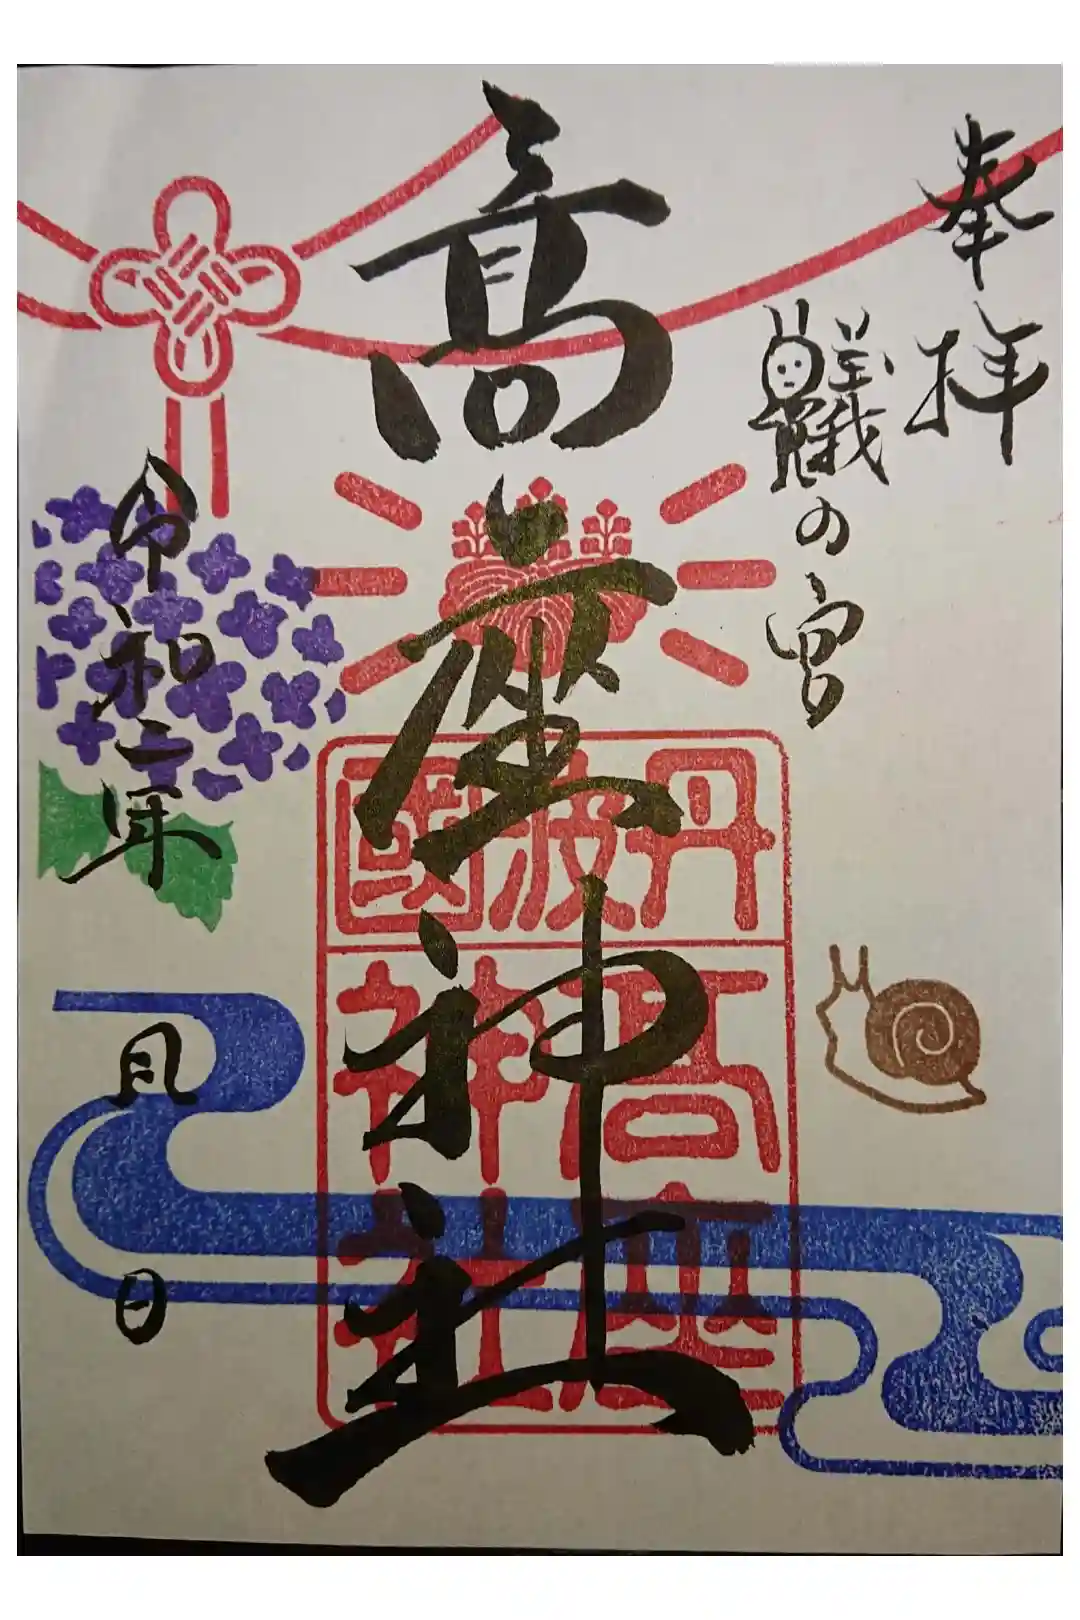 奉拝
蟻の宮
高座神社
丹波國
高座
神社
令和二年
月
日